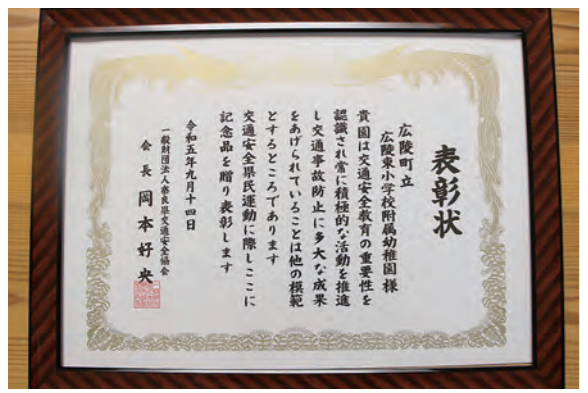 表彰状
広陵町立
広陵東小学校附属幼稚園様
貴園は交通安全教育の重要性を
認識され常に積極的な活動を推進
し交通事故防止に多大な成果
をあげられていることは他の模範
とするところであります
交通安全県民運動に際しここに
記念品を贈り表彰します
令和五年九月十四日
一般財団法人奈良県交通安全協会
会長 岡本好央